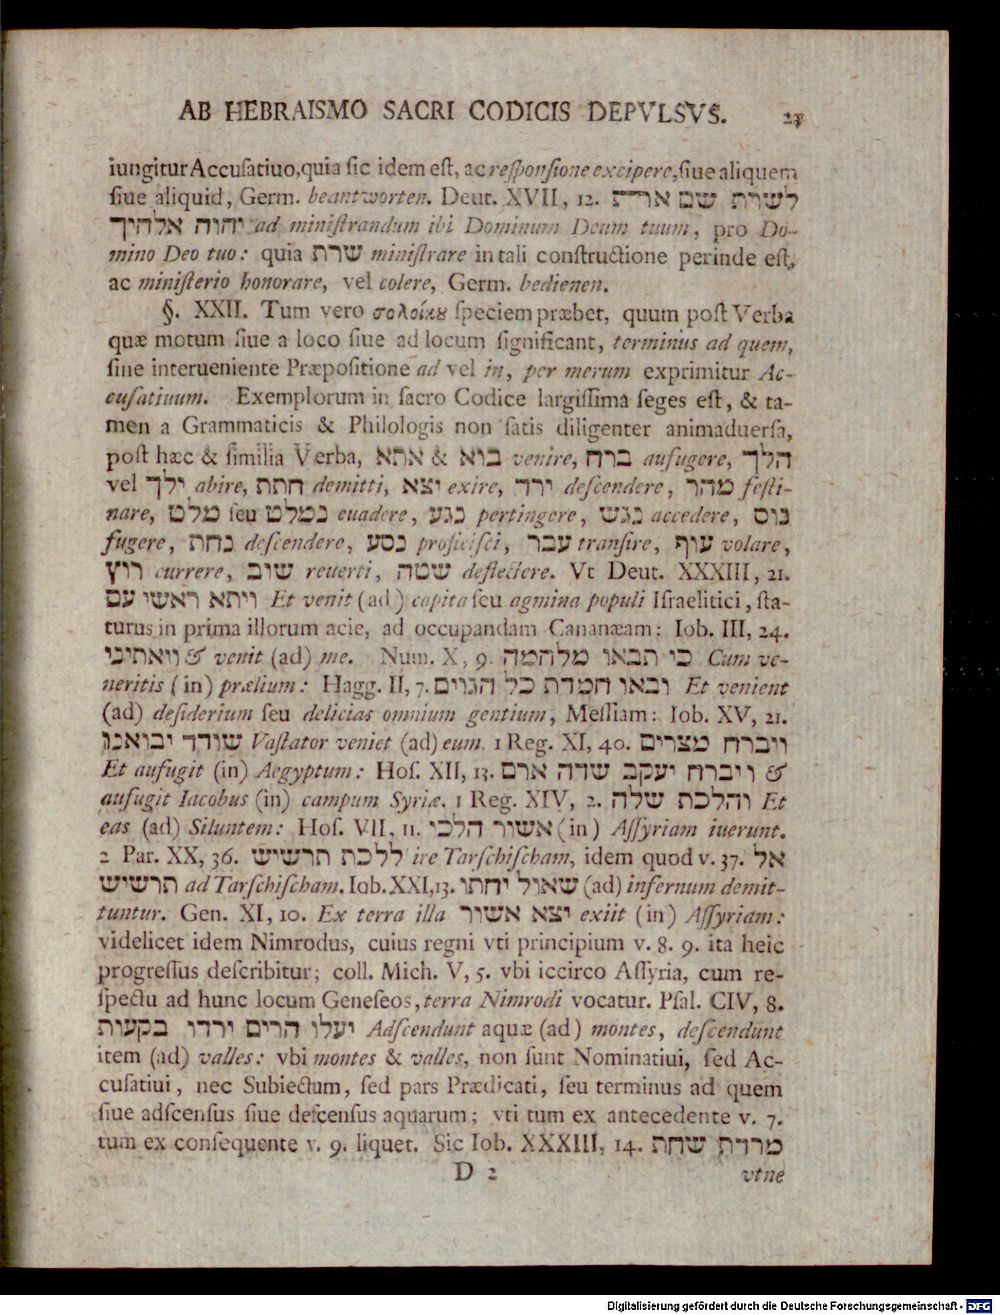 AB HEBRAISMO SACRI CODICIS DEPVLSVS.
iungitur Accuſatiuo, quia ſic idem eſt, ac reſponſione excipere, ſiue aliquem
ſiue aliquid, Germ. beantworten. Deut. XVII, 12. לשרת שם את
יהוה אלהיך ad miniſtrandum ibi Dominum Deum tuum, pro Do-
mino Deo tuo: quia שרת miniſtrare in tali conſtructione perinde eſt,
ac miniſterio honorare, vel colere, Germ. bedienen.
§. XXII. Tum vero σολοίκου ſpeciem præbet, quum poſt Verba
quæ motum ſiue a loco ſiue ad locum ſignificant, terminus ad quem,
ſine interueniente Præpoſitione ad vel in, per merum exprimitur Ac-
cuſatiuum. Exemplorum in ſacro Codice largiſſima ſeges eſt, & ta-
men a Grammaticis & Philologis non ſatis diligenter animaduerſa,
poſt hæc & ſimilia Verba, אתא & בוא venire, ברח aufugere, הלך
vel ילך abire, חתת demitti, יצא exire, ירד deſcendere, מהר feſti-
nare, מלט ſeu נמלט euadere, נגע pertingere, נגש accedere, נוס
fugere, נחת deſcendere, נסע proficiſci, עבר tranſire, עוף volare,
רוץ currere, שוב reuerti, שטה deflectere. Vt Deut. XXXIII, 21.
ויתא ראשי עם Et venit (ad) capita ſeu agmina populi Iſraelitici, ſta-
turus in prima illorum acie, ad occupandam Cananæam: Iob. III, 24.
ויאתיני & venit (ad) me. Num. X, 9. כי תבאו מלחמה Cum ve-
neritis (in) prælium: Hagg. II, 7. ובאו חמדת כל הגוים Et venient
(ad) deſiderium ſeu delicias omnium gentium, Meſſiam: Iob. XV, 21.
שודד יבואנו Vaſtator veniet (ad) eum. 1 Reg. XI, 40. ויברח מצרים
Et aufugit (in) Aegyptum: Hoſ. XII, 13. ויברח יעקב שדה ארם &
aufugit Iacobus (in) campum Syriæ. 1 Reg. XIV, 2. והלכת שלה Et
eas (ad) Siluntem: Hoſ. VII, 11. אשור הלכו (in) Aſſyriam iuerunt.
2 Par. XX, 36. ללכת תרשיש ire Tarſchiſcham, idem quod v. 37. אל
תרשיש ad Tarſchiſcham. Iob. XXI, 13. שאול יחתו (ad) infernum demit-
tuntur. Gen. XI, 10. Ex terra illa יצא אשור exiit (in) Aſſyriam:
videlicet idem Nimrodus, cuius regni vti principium v. 8. 9. ita heic
progreſſus deſcribitur; coll. Mich. V, 5. vbi iccirco Aſſyria, cum re-
ſpectu ad hunc locum Geneſeos, terra Nimrodi vocatur. Pſal. CIV, 8.
יעלו הרים ירדו בקעות Adſcendunt aquæ (ad) montes, deſcendunt
item (ad) valles: vbi montes & valles, non ſunt Nominatiui, ſed Ac-
cuſatiui, nec Subiectum, ſed pars Prædicati, ſeu terminus ad quem
ſiue adſcenſus ſiue deſcenſus aquarum; vti tum ex antecedente v. 7.
tum ex conſequente v. 9. liquet. Sic Iob. XXXIII, 14. מרדת שחת
D 2 vtne
Digitalisierung gefördert durch die Deutsche Forschungsgemeinschaft - DFG